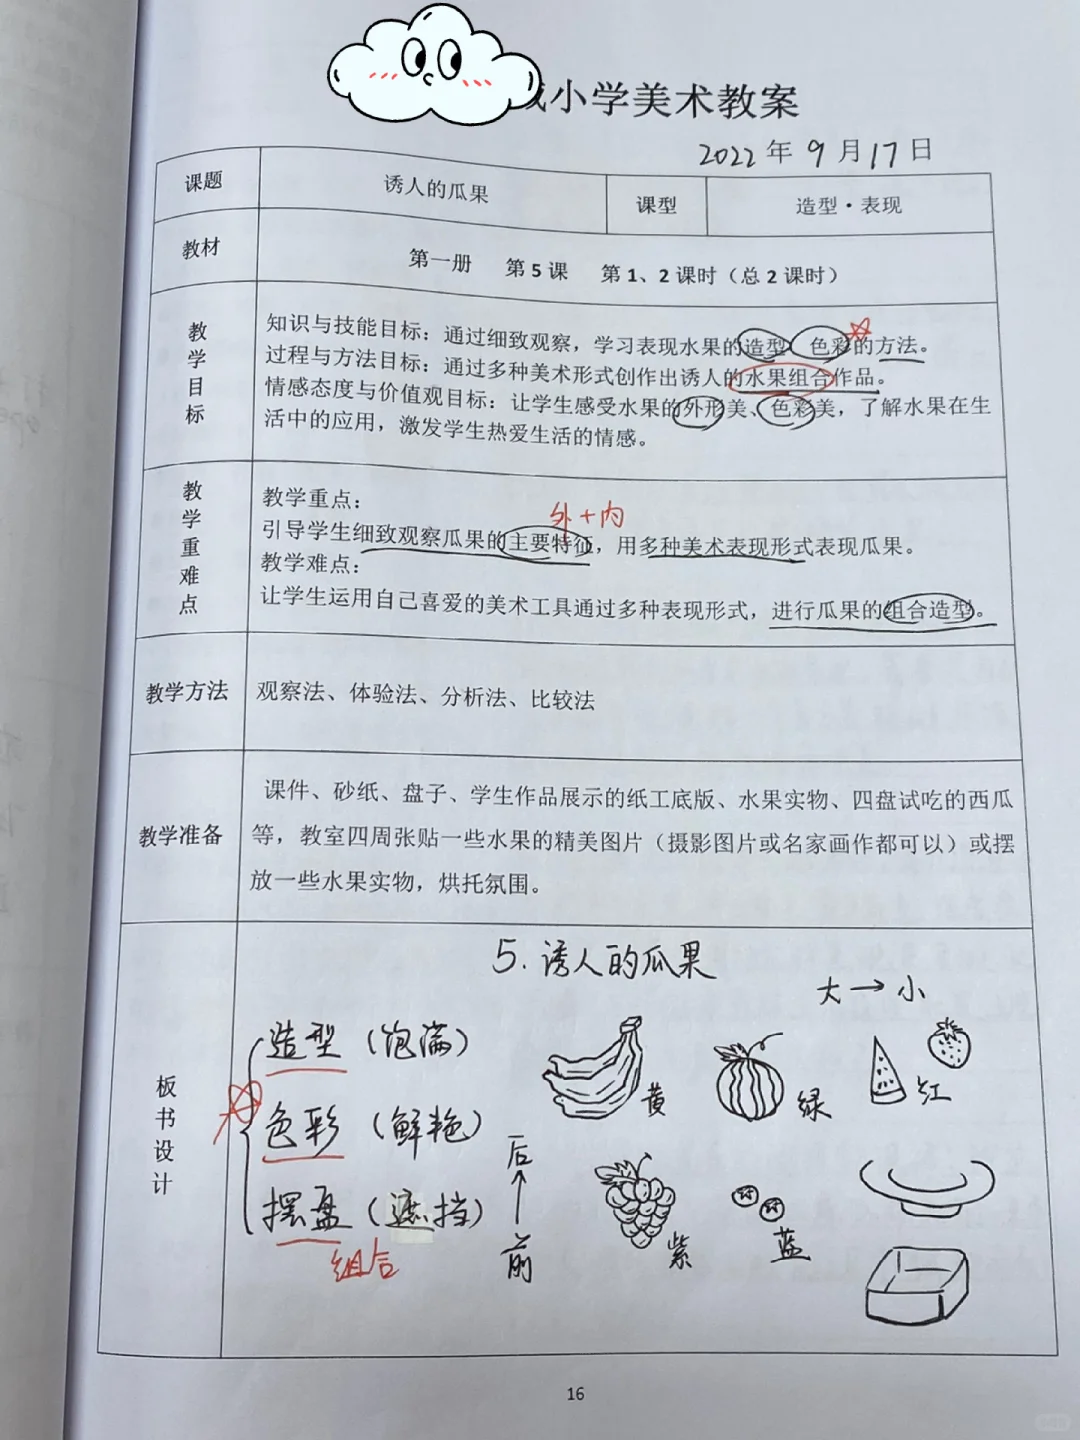 小学美术教案
2022年9月17日
课题 诱人的瓜果 课型 造型·表现
教材 第一册 第5课 第1、2课时（总2课时）
教学目标
知识与技能目标：通过细致观察，学习表现水果的造型 色彩的方法。
过程与方法目标：通过多种美术形式创作出诱人的水果组合作品。
情感态度与价值观目标：让学生感受水果的外形美、色彩美，了解水果在生
活中的应用，激发学生热爱生活的情感。
教学重难点
教学重点：
外+内
引导学生细致观察瓜果的主要特征，用多种美术表现形式表现瓜果。
教学难点：
让学生运用自己喜爱的美术工具通过多种表现形式，进行瓜果的组合造型。
教学方法 观察法、体验法、分析法、比较法
教学准备
课件、砂纸、盘子、学生作品展示的纸工底版、水果实物、四盘试吃的西瓜
等，教室四周张贴一些水果的精美图片（摄影图片或名家画作都可以）或摆
放一些水果实物，烘托氛围。
板书设计
5.诱人的瓜果
大→小
造型（饱满）
黄 绿 红
色彩（鲜艳）
后
摆盘（遮挡）
组合
前
紫 蓝
16